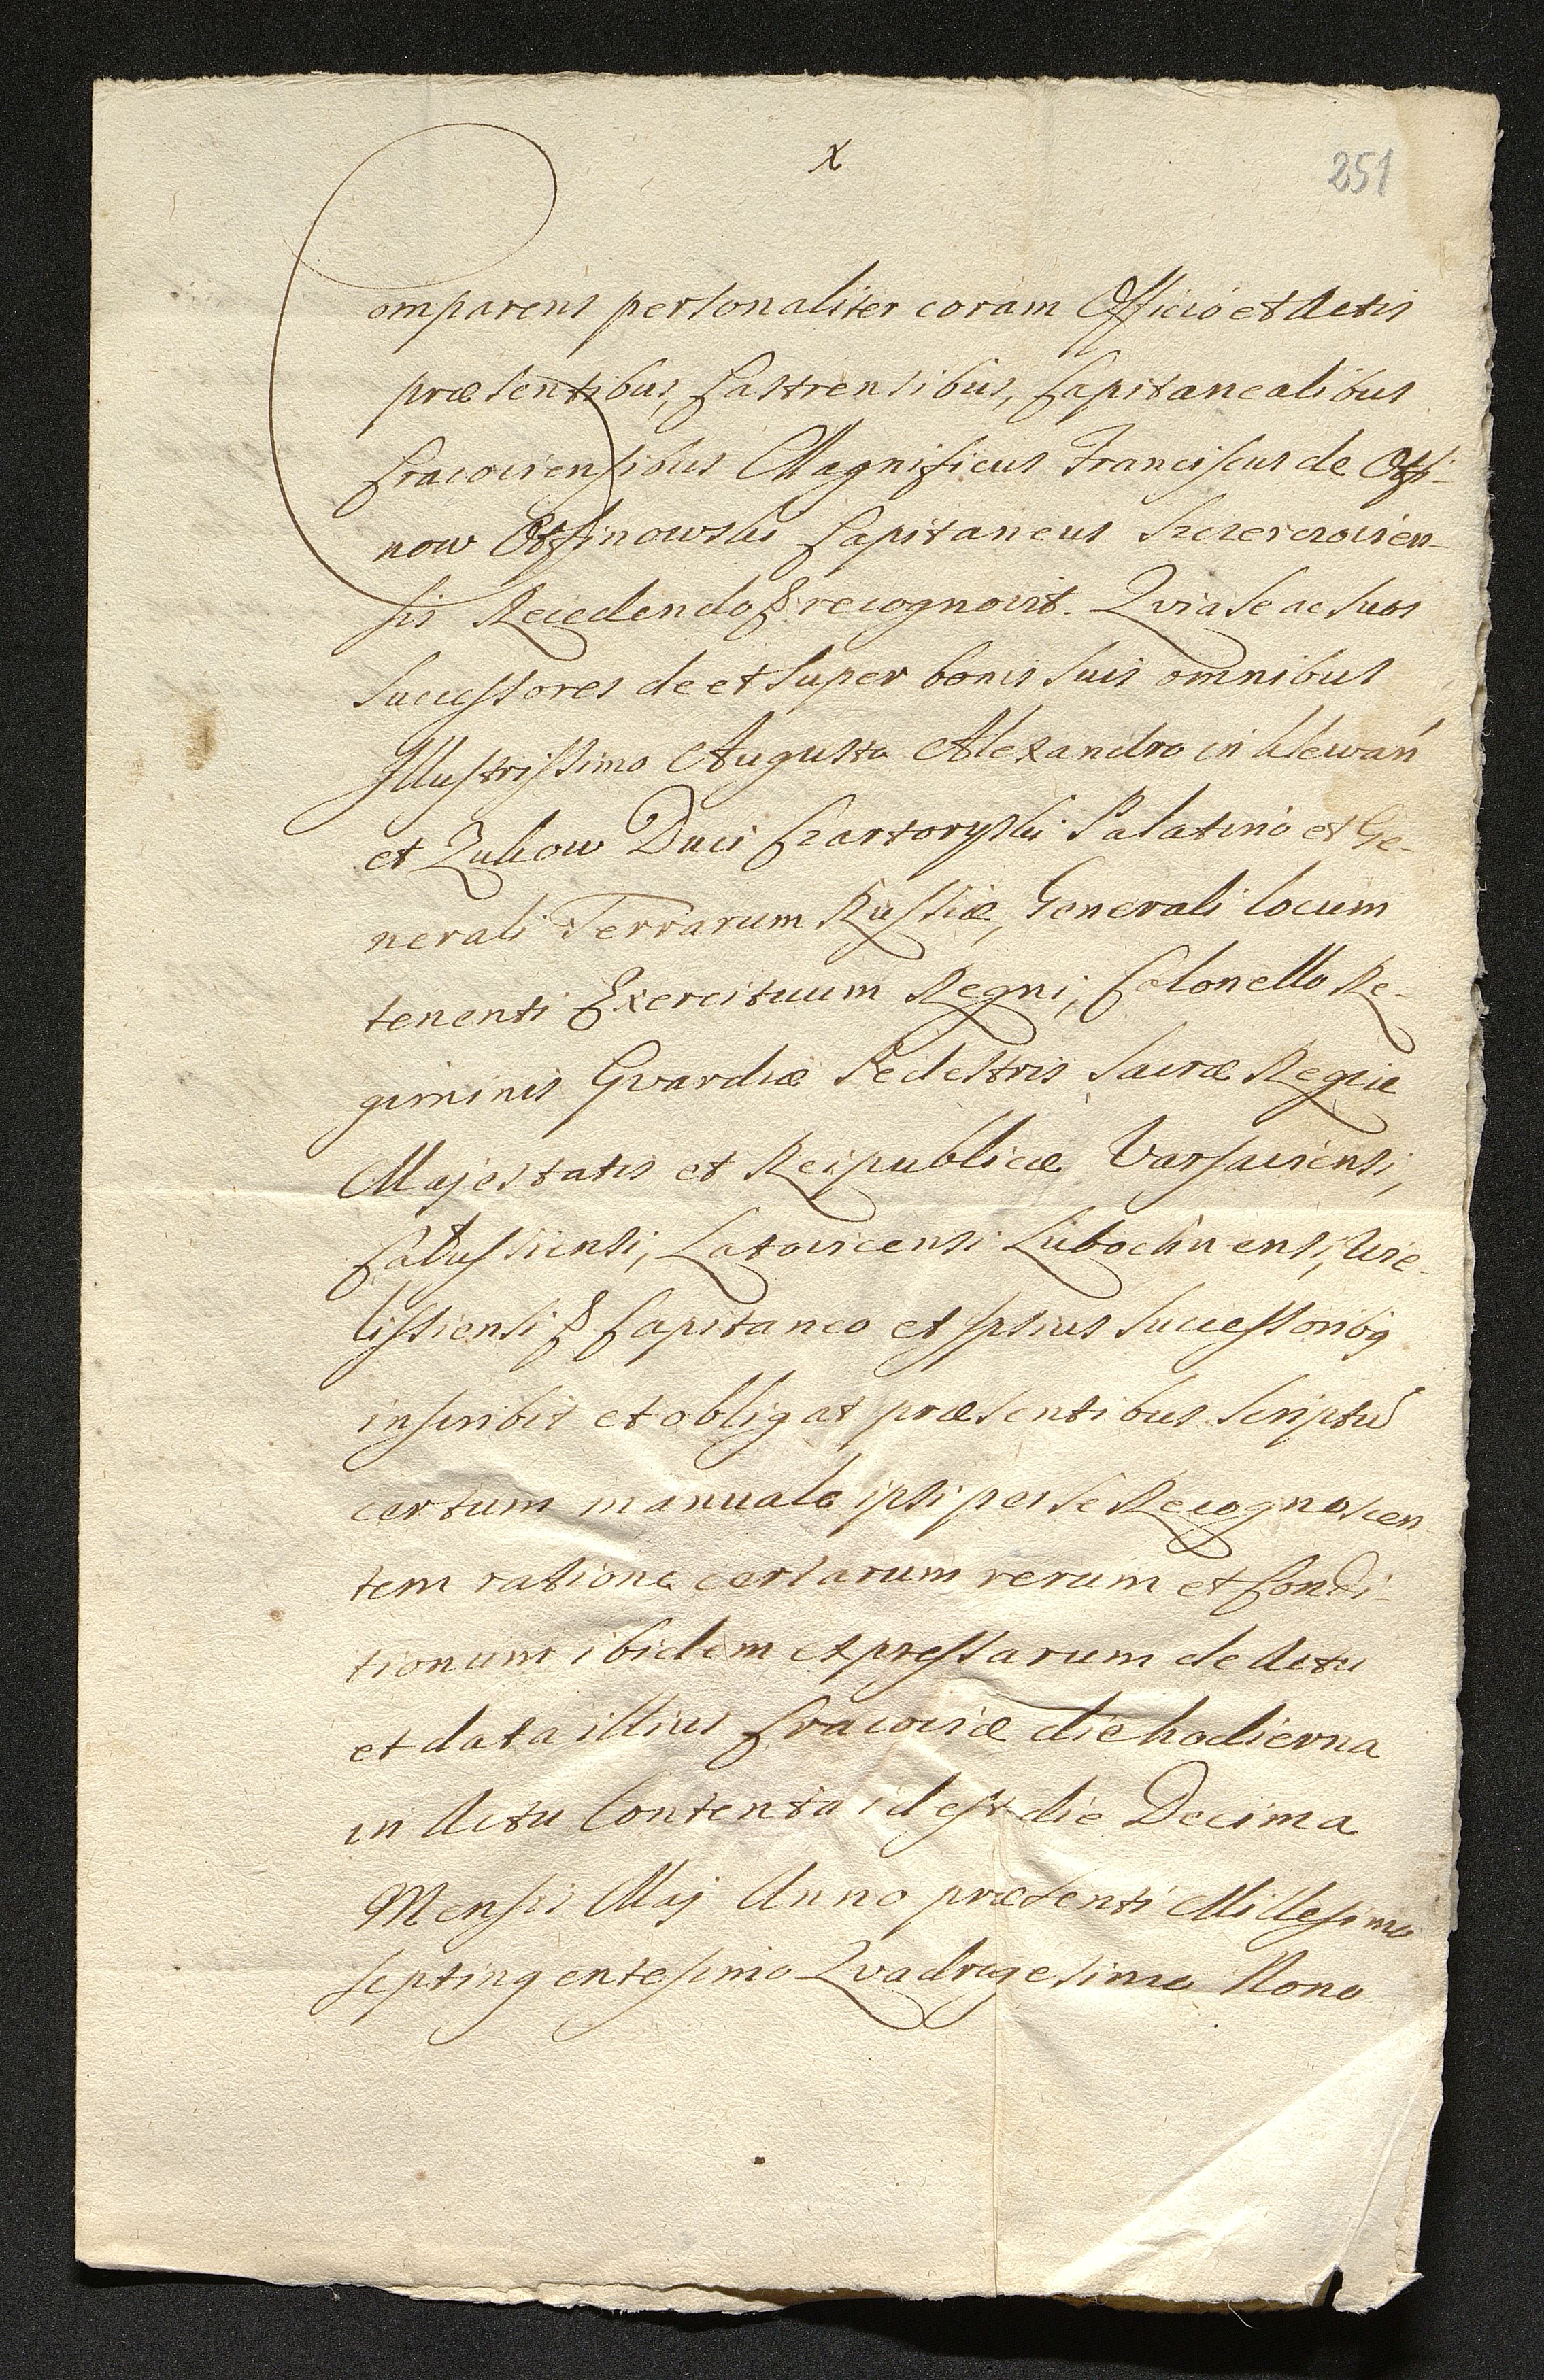 x
251
Comparens personaliter coram Officio et Actis
præsentibus, Castrensibus, Capitanealibus
Cracoviensibus Magnificus Franciscus de Ossi-
now Ossinowski Capitaneus Szczercovien-
sis Recedendo & recognovit. Qvia Se ac Suos
Successores de et Super bonis Suis omnibus
Illustrissimo Augusto Alexandro in Klewań
et Zukow Duci Czartoryski Palatino et Ge-
nerali Terrarum Russiæ, Generali locum
tenenti Exercituum Regni, Colonello Re-
giminis Gvardiæ Pedestris Sacræ Regiæ
Majestatis et Reipublicæ Varsaviensi,
Calussiensi, Latovicensi Lubochnensi, Wie-
lissiensi & Capitaneo et Ipsius Successoribq
inscribit et obligat præsentibus Scriptū
certum manuale ipsi per Se Recognoscen-
tem ratione certarum rerum et Condi-
tionum ibidem expressarum de Actu
et data illius Cracoviæ die hodierna
in Actu Contenta id est die Decima
Mensis Maj Anno præsenti Millesimo
Septingentesimo Qvadragesimo Nono